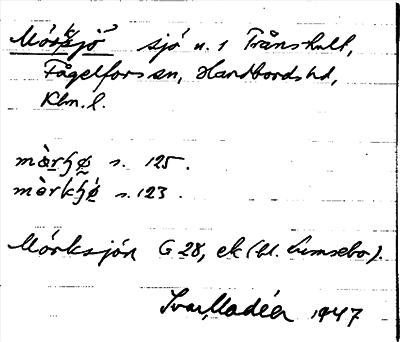 Mörksjö sjö u. 1 Trånshult,
Fågelfors sn, Handbords hd,
Klm. l.
mə̀rɧø s. 125.
mə̀rkɧø s. 123.
Mörksjön G 28, ek (bl. Emsebo).
Ivar Modéer 1947